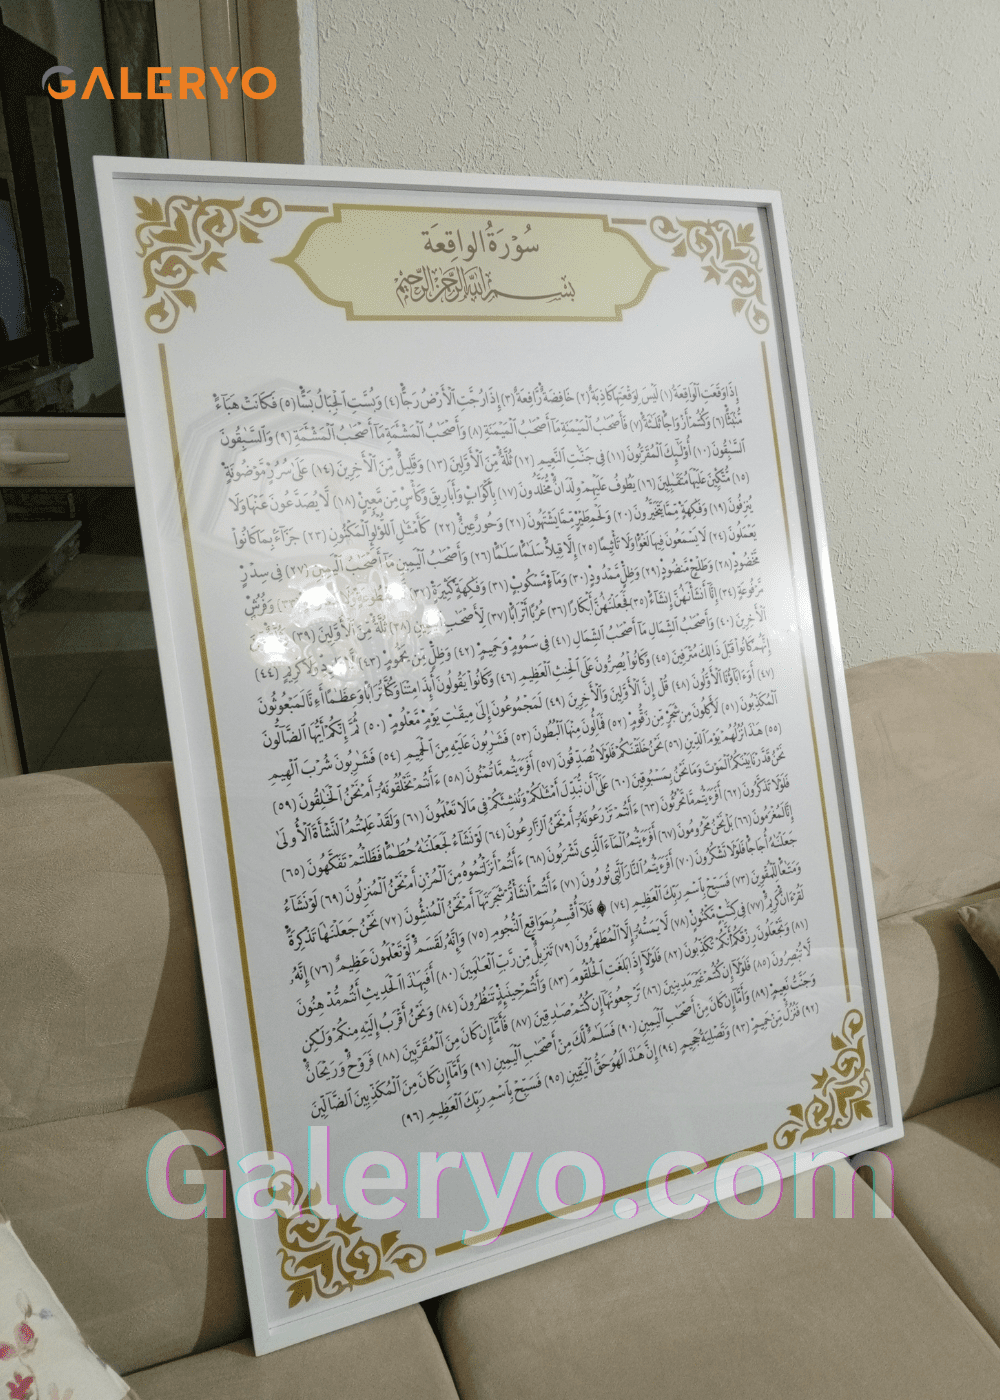 GALERYO
سُوْرَةُ الواقِعَة
بِسْمِ اللَّهِ الرَّحْمَٰنِ الرَّحِيمِ
إِذَا وَقَعَتِ الْوَاقِعَةُ (١) لَيْسَ لِوَقْعَتِهَا كَاذِبَةٌ (٢) خَافِضَةٌ رَّافِعَةٌ (٣) إِذَا رُجَّتِ الْأَرْضُ رَجًّا (٤) وَبُسَّتِ الْجِبَالُ بَسًّا (٥) فَكَانَتْ هَبَآءً
مُّنْبَثًّا (٦) وَكُنْتُمْ أَزْوَاجًا ثَلَاثَةً (٧) فَأَصْحَابُ الْمَيْمَنَةِ مَآ أَصْحَابُ الْمَيْمَنَةِ (٨) وَأَصْحَابُ الْمَشْـَٔمَةِ مَآ أَصْحَابُ الْمَشْـَٔمَةِ (٩) وَالسَّابِقُونَ
السَّابِقُونَ (١٠) أُوْلَٰٓئِكَ الْمُقَرَّبُونَ (١١) فِي جَنَّاتِ النَّعِيمِ (١٢) ثُلَّةٌ مِّنَ الْأَوَّلِينَ (١٣) وَقَلِيلٌ مِّنَ الْآخِرِينَ (١٤) عَلَىٰ سُرُرٍ مَّوْضُونَةٍ
(١٥) مُّتَّكِـِٔينَ عَلَيْهَا مُتَقَابِلِينَ (١٦) يَطُوفُ عَلَيْهِمْ وِلْدَانٌ مُّخَلَّدُونَ (١٧) بِأَكْوَابٍ وَأَبَارِيقَ وَكَأْسٍ مِّن مَّعِينٍ (١٨) لَّا يُصَدَّعُونَ عَنْهَا وَلَا
يُنزِفُونَ (١٩) وَفَاكِهَةٍ مِّمَّا يَتَخَيَّرُونَ (٢٠) وَلَحْمِ طَيْرٍ مِّمَّا يَشْتَهُونَ (٢١) وَحُورٌ عِينٌ (٢٢) كَأَمْثَالِ اللُّؤْلُؤِ الْمَكْنُونِ (٢٣) جَزَآءً بِمَا كَانُوا
يَعْمَلُونَ (٢٤) لَا يَسْمَعُونَ فِيهَا لَغْوًا وَلَا تَأْثِيمًا (٢٥) إِلَّا قِيلًا سَلَامًا سَلَامًا (٢٦) وَأَصْحَابُ الْيَمِينِ مَآ أَصْحَابُ الْيَمِينِ (٢٧) فِي سِدْرٍ
مَّخْضُودٍ (٢٨) وَطَلْحٍ مَّنْضُودٍ (٢٩) وَظِلٍّ مَّمْدُودٍ (٣٠) وَمَآءٍ مَّسْكُوبٍ (٣١) وَفَاكِهَةٍ كَثِيرَةٍ (٣٢) وَفُرُشٍ
مَّرْفُوعَةٍ (٣٤) إِنَّآ أَنشَأْنَاهُنَّ إِنشَآءً (٣٥) فَجَعَلْنَاهُنَّ أَبْكَارًا (٣٦) عُرُبًا أَتْرَابًا (٣٧) لِّأَصْحَابِ الْيَمِينِ (٣٨) ثُلَّةٌ مِّنَ الْأَوَّلِينَ (٣٩)
الْآخِرِينَ (٤٠) وَأَصْحَابُ الشِّمَالِ مَآ أَصْحَابُ الشِّمَالِ (٤١) فِي سَمُومٍ وَحَمِيمٍ (٤٢) وَظِلٍّ مِّن يَحْمُومٍ (٤٣) لَّا بَارِدٍ وَلَا كَرِيمٍ (٤٤)
إِنَّهُمْ كَانُوا قَبْلَ ذَٰلِكَ مُتْرَفِينَ (٤٥) وَكَانُوا يُصِرُّونَ عَلَى الْحِنثِ الْعَظِيمِ (٤٦) وَكَانُوا يَقُولُونَ أَئِذَا مِتْنَا وَكُنَّا تُرَابًا وَعِظَامًا أَءِنَّا لَمَبْعُوثُونَ
(٤٧) أَوَءَابَآؤُنَا الْأَوَّلُونَ (٤٨) قُلْ إِنَّ الْأَوَّلِينَ وَالْآخِرِينَ (٤٩) لَمَجْمُوعُونَ إِلَىٰ مِيقَاتِ يَوْمٍ مَّعْلُومٍ (٥٠) ثُمَّ إِنَّكُمْ أَيُّهَا الضَّآلُّونَ
الْمُكَذِّبُونَ (٥١) لَآكِلُونَ مِن شَجَرٍ مِّن زَقُّومٍ (٥٢) فَمَالِـُٔونَ مِنْهَا الْبُطُونَ (٥٣) فَشَارِبُونَ عَلَيْهِ مِنَ الْحَمِيمِ (٥٤) فَشَارِبُونَ شُرْبَ الْهِيمِ
(٥٥) هَٰذَا نُزُلُهُمْ يَوْمَ الدِّينِ (٥٦) نَحْنُ خَلَقْنَاكُمْ فَلَوْلَا تُصَدِّقُونَ (٥٧) أَفَرَءَيْتُم مَّا تُمْنُونَ (٥٨) ءَأَنتُمْ تَخْلُقُونَهُ أَمْ نَحْنُ الْخَالِقُونَ (٥٩)
نَحْنُ قَدَّرْنَا بَيْنَكُمُ الْمَوْتَ وَمَا نَحْنُ بِمَسْبُوقِينَ (٦٠) عَلَىٰ أَن نُّبَدِّلَ أَمْثَالَكُمْ وَنُنشِئَكُمْ فِي مَا لَا تَعْلَمُونَ (٦١) وَلَقَدْ عَلِمْتُمُ النَّشْأَةَ الْأُولَىٰ
فَلَوْلَا تَذَكَّرُونَ (٦٢) أَفَرَءَيْتُم مَّا تَحْرُثُونَ (٦٣) ءَأَنتُمْ تَزْرَعُونَهُ أَمْ نَحْنُ الزَّارِعُونَ (٦٤) لَوْ نَشَآءُ لَجَعَلْنَاهُ حُطَامًا فَظَلْتُمْ تَفَكَّهُونَ (٦٥)
إِنَّا لَمُغْرَمُونَ (٦٦) بَلْ نَحْنُ مَحْرُومُونَ (٦٧) أَفَرَءَيْتُمُ الْمَآءَ الَّذِي تَشْرَبُونَ (٦٨) ءَأَنتُمْ أَنزَلْتُمُوهُ مِنَ الْمُزْنِ أَمْ نَحْنُ الْمُنزِلُونَ (٦٩) لَوْ نَشَآءُ
جَعَلْنَاهُ أُجَاجًا فَلَوْلَا تَشْكُرُونَ (٧٠) أَفَرَءَيْتُمُ النَّارَ الَّتِي تُورُونَ (٧١) ءَأَنتُمْ أَنشَأْتُمْ شَجَرَتَهَآ أَمْ نَحْنُ الْمُنشِـُٔونَ (٧٢) نَحْنُ جَعَلْنَاهَا تَذْكِرَةً
وَمَتَاعًا لِّلْمُقْوِينَ (٧٣) فَسَبِّحْ بِاسْمِ رَبِّكَ الْعَظِيمِ (٧٤) فَلَآ أُقْسِمُ بِمَوَاقِعِ النُّجُومِ (٧٥) وَإِنَّهُ لَقَسَمٌ لَّوْ تَعْلَمُونَ عَظِيمٌ (٧٦) إِنَّهُ
لَقُرْءَانٌ كَرِيمٌ (٧٧) فِي كِتَابٍ مَّكْنُونٍ (٧٨) لَّا يَمَسُّهُ إِلَّا الْمُطَهَّرُونَ (٧٩) تَنزِيلٌ مِّن رَّبِّ الْعَالَمِينَ (٨٠) أَفَبِهَٰذَا الْحَدِيثِ أَنتُم مُّدْهِنُونَ
(٨١) وَتَجْعَلُونَ رِزْقَكُمْ أَنَّكُمْ تُكَذِّبُونَ (٨٢) فَلَوْلَآ إِذَا بَلَغَتِ الْحُلْقُومَ (٨٣) وَأَنتُمْ حِينَئِذٍ تَنظُرُونَ (٨٤) وَنَحْنُ أَقْرَبُ إِلَيْهِ مِنكُمْ وَلَٰكِن
لَّا تُبْصِرُونَ (٨٥) فَلَوْلَآ إِن كُنتُمْ غَيْرَ مَدِينِينَ (٨٦) تَرْجِعُونَهَآ إِن كُنتُمْ صَادِقِينَ (٨٧) فَأَمَّآ إِن كَانَ مِنَ الْمُقَرَّبِينَ (٨٨) فَرَوْحٌ وَرَيْحَانٌ
وَجَنَّتُ نَعِيمٍ (٨٩) وَأَمَّآ إِن كَانَ مِنْ أَصْحَابِ الْيَمِينِ (٩٠) فَسَلَامٌ لَّكَ مِنْ أَصْحَابِ الْيَمِينِ (٩١) وَأَمَّآ إِن كَانَ مِنَ الْمُكَذِّبِينَ الضَّآلِّينَ
(٩٢) فَنُزُلٌ مِّنْ حَمِيمٍ (٩٣) وَتَصْلِيَةُ جَحِيمٍ (٩٤) إِنَّ هَٰذَا لَهُوَ حَقُّ الْيَقِينِ (٩٥) فَسَبِّحْ بِاسْمِ رَبِّكَ الْعَظِيمِ (٩٦)
Galeryo.com